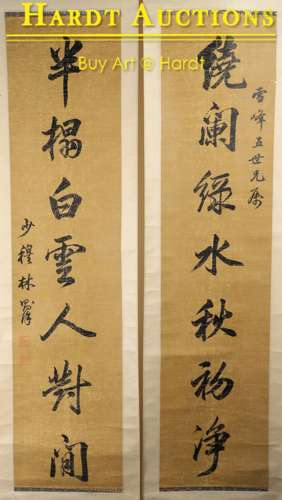 HARDT AUCTIONS
Buy Art @ Hardt
雪峰五世兄屬
繞闌綠水秋初淨
半榻白雲人對閒
少穆林則徐